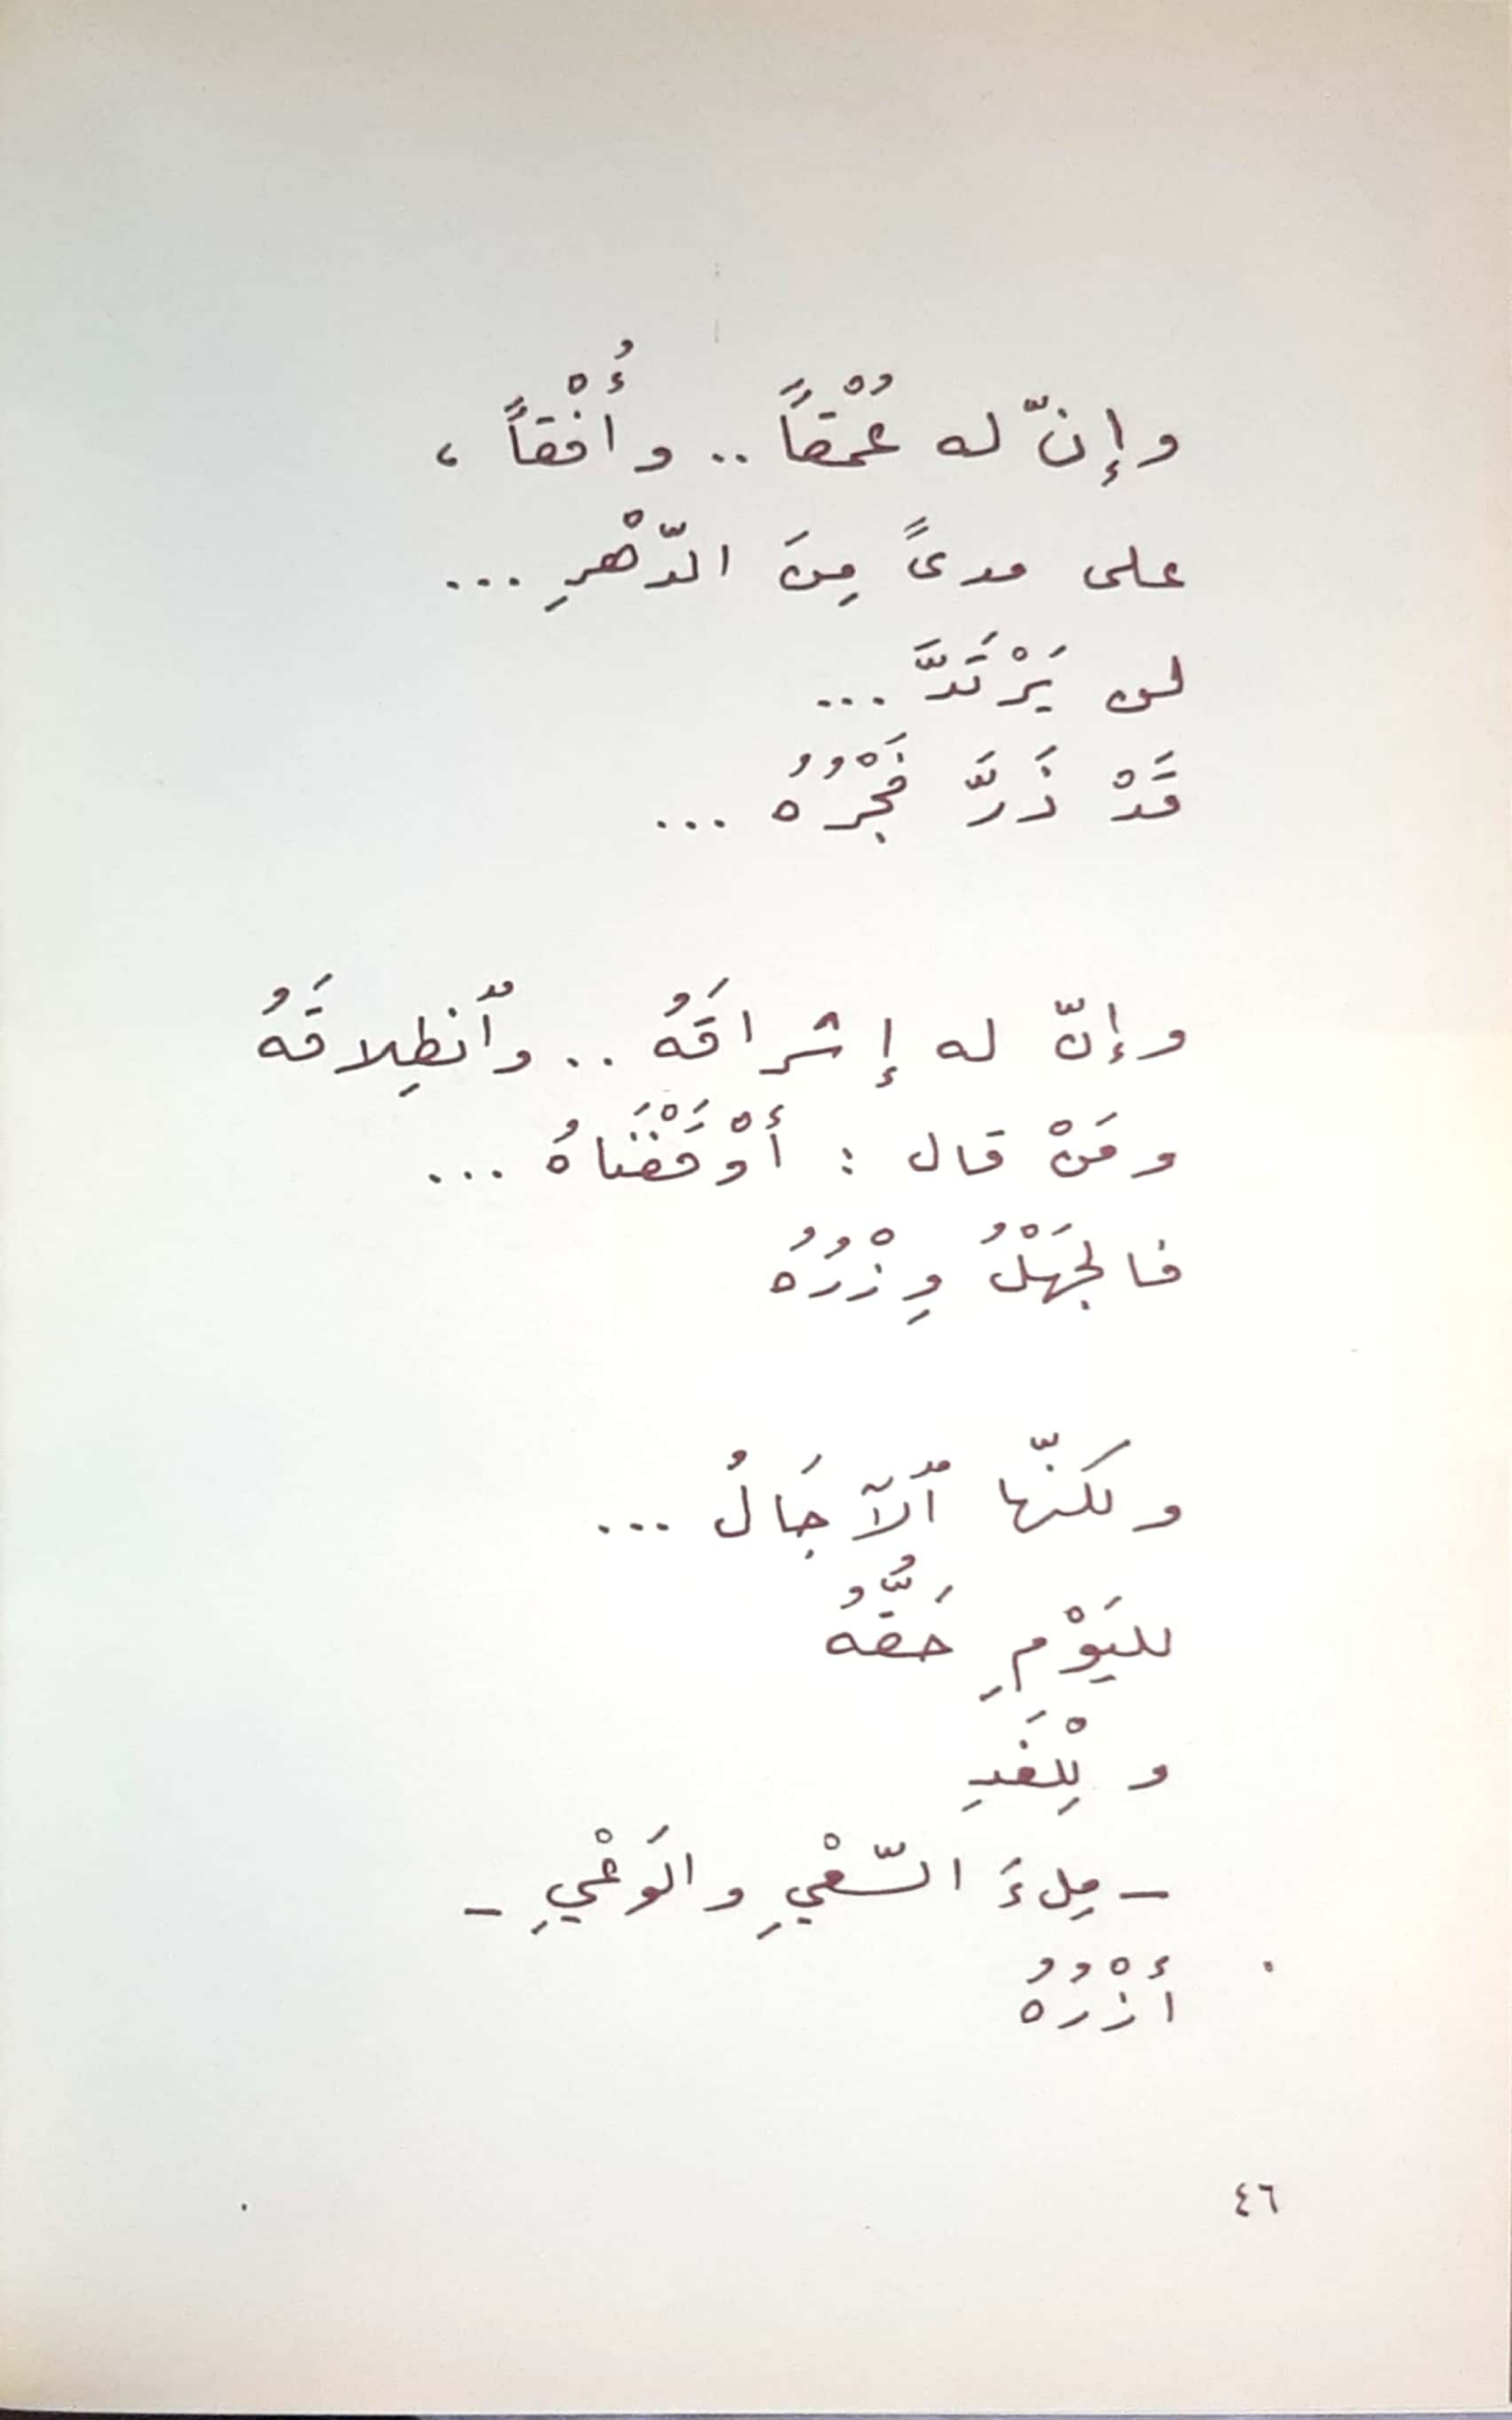 وإنّ له عُمْقاً .. وأُفْقاً ،
على مدىً مِنَ الدّهْرِ ...
لن يَرْتَدَّ ...
قَدْ ذَرَّ فَجْرُهُ ...
وإنّ له إشراقَهُ .. وٱنطِلاقَهُ
ومَنْ قال : أَوْقَفْنَاهُ ...
فالجَهْلُ وِزْرُهُ
ولكنّها ٱلآجَالُ ...
لليَوْمِ حَقُّهُ
و لِلْغَدِ
- مِلءَ السّعْيِ والوَعْيِ -
أزْرُهُ
٤٦